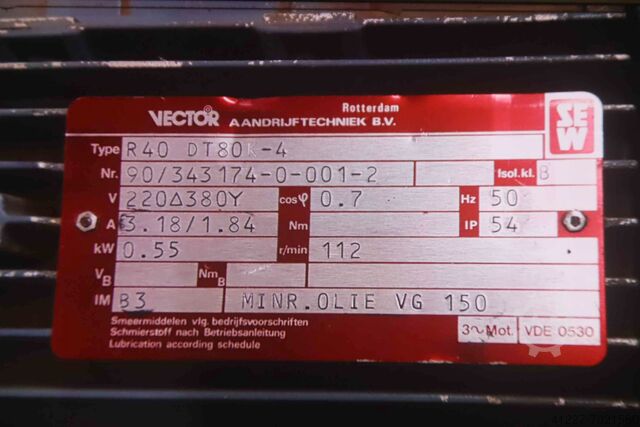 VECTOR Rotterdam
AANDRIJFTECHNIEK B.V.
SEW
Type R40 DT80K-4
Nr. 90/343174-0-001-2 Isol.kl. B
V 220Δ380Y cosφ 0.7 Hz 50
A 3.18/1.84 Nm IP 54
kW 0.55 r/min 112
VB NmB
IM B3 MINR.OLIE VG 150
Smeermiddelen vlg. bedrijfsvoorschriften
Schmierstoff nach Betriebsanleitung
Lubrication according schedule
3~Mot. VDE 0530